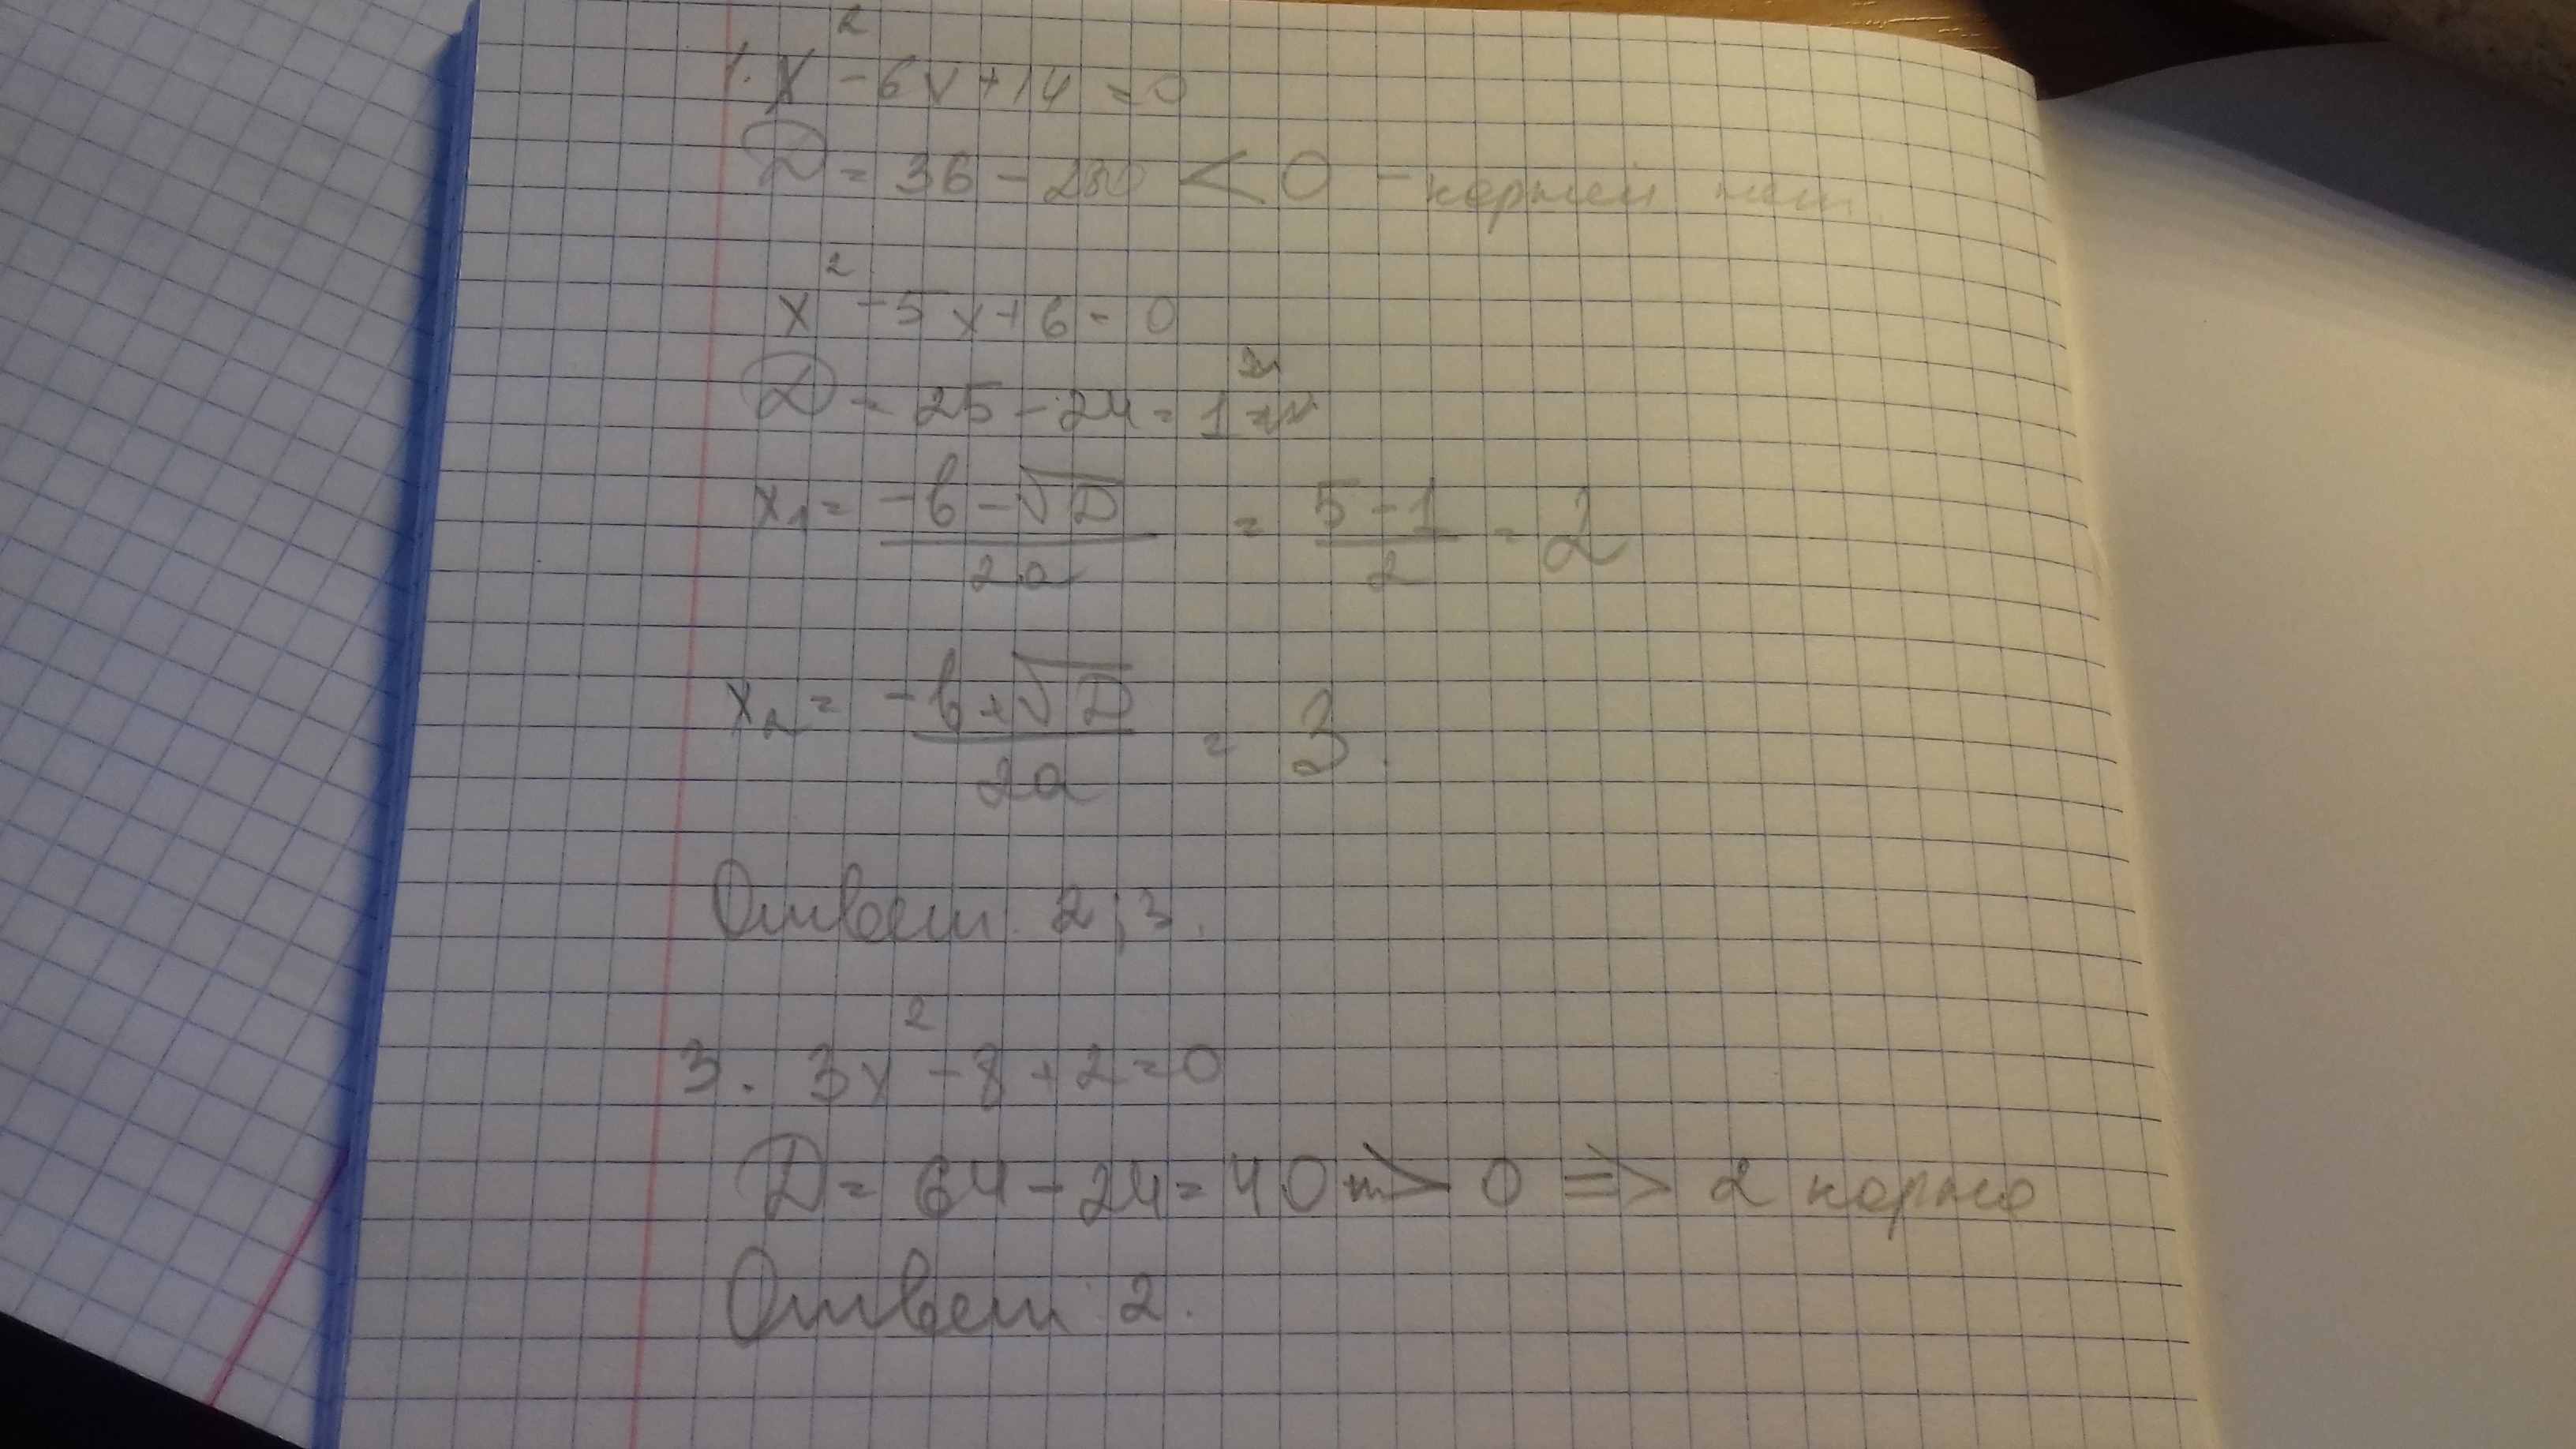 1. x² - 6x + 14 = 0
D = 36 - 280 < 0 - корней нет
x² - 5x + 6 = 0
D = 25 - 24 = 1
x₁ = (-b - √D) / 2a = (5 - 1) / 2 = 2
x₂ = (-b + √D) / 2a = 3.
Ответ: 2; 3.
3. 3x² - 8 + 2 = 0
D = 64 - 24 = 40 > 0 => 2 корня
Ответ: 2.